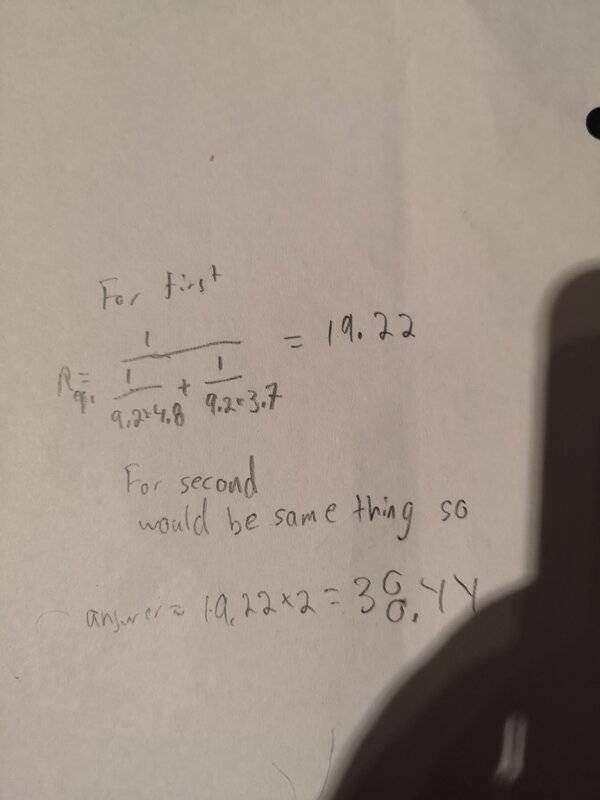 For first
Req. = 1 / (1 / 9.2×4.8 + 1 / 9.2×3.7) = 19.22
For second
would be same thing so
answer = 19.22×2 = 38.44